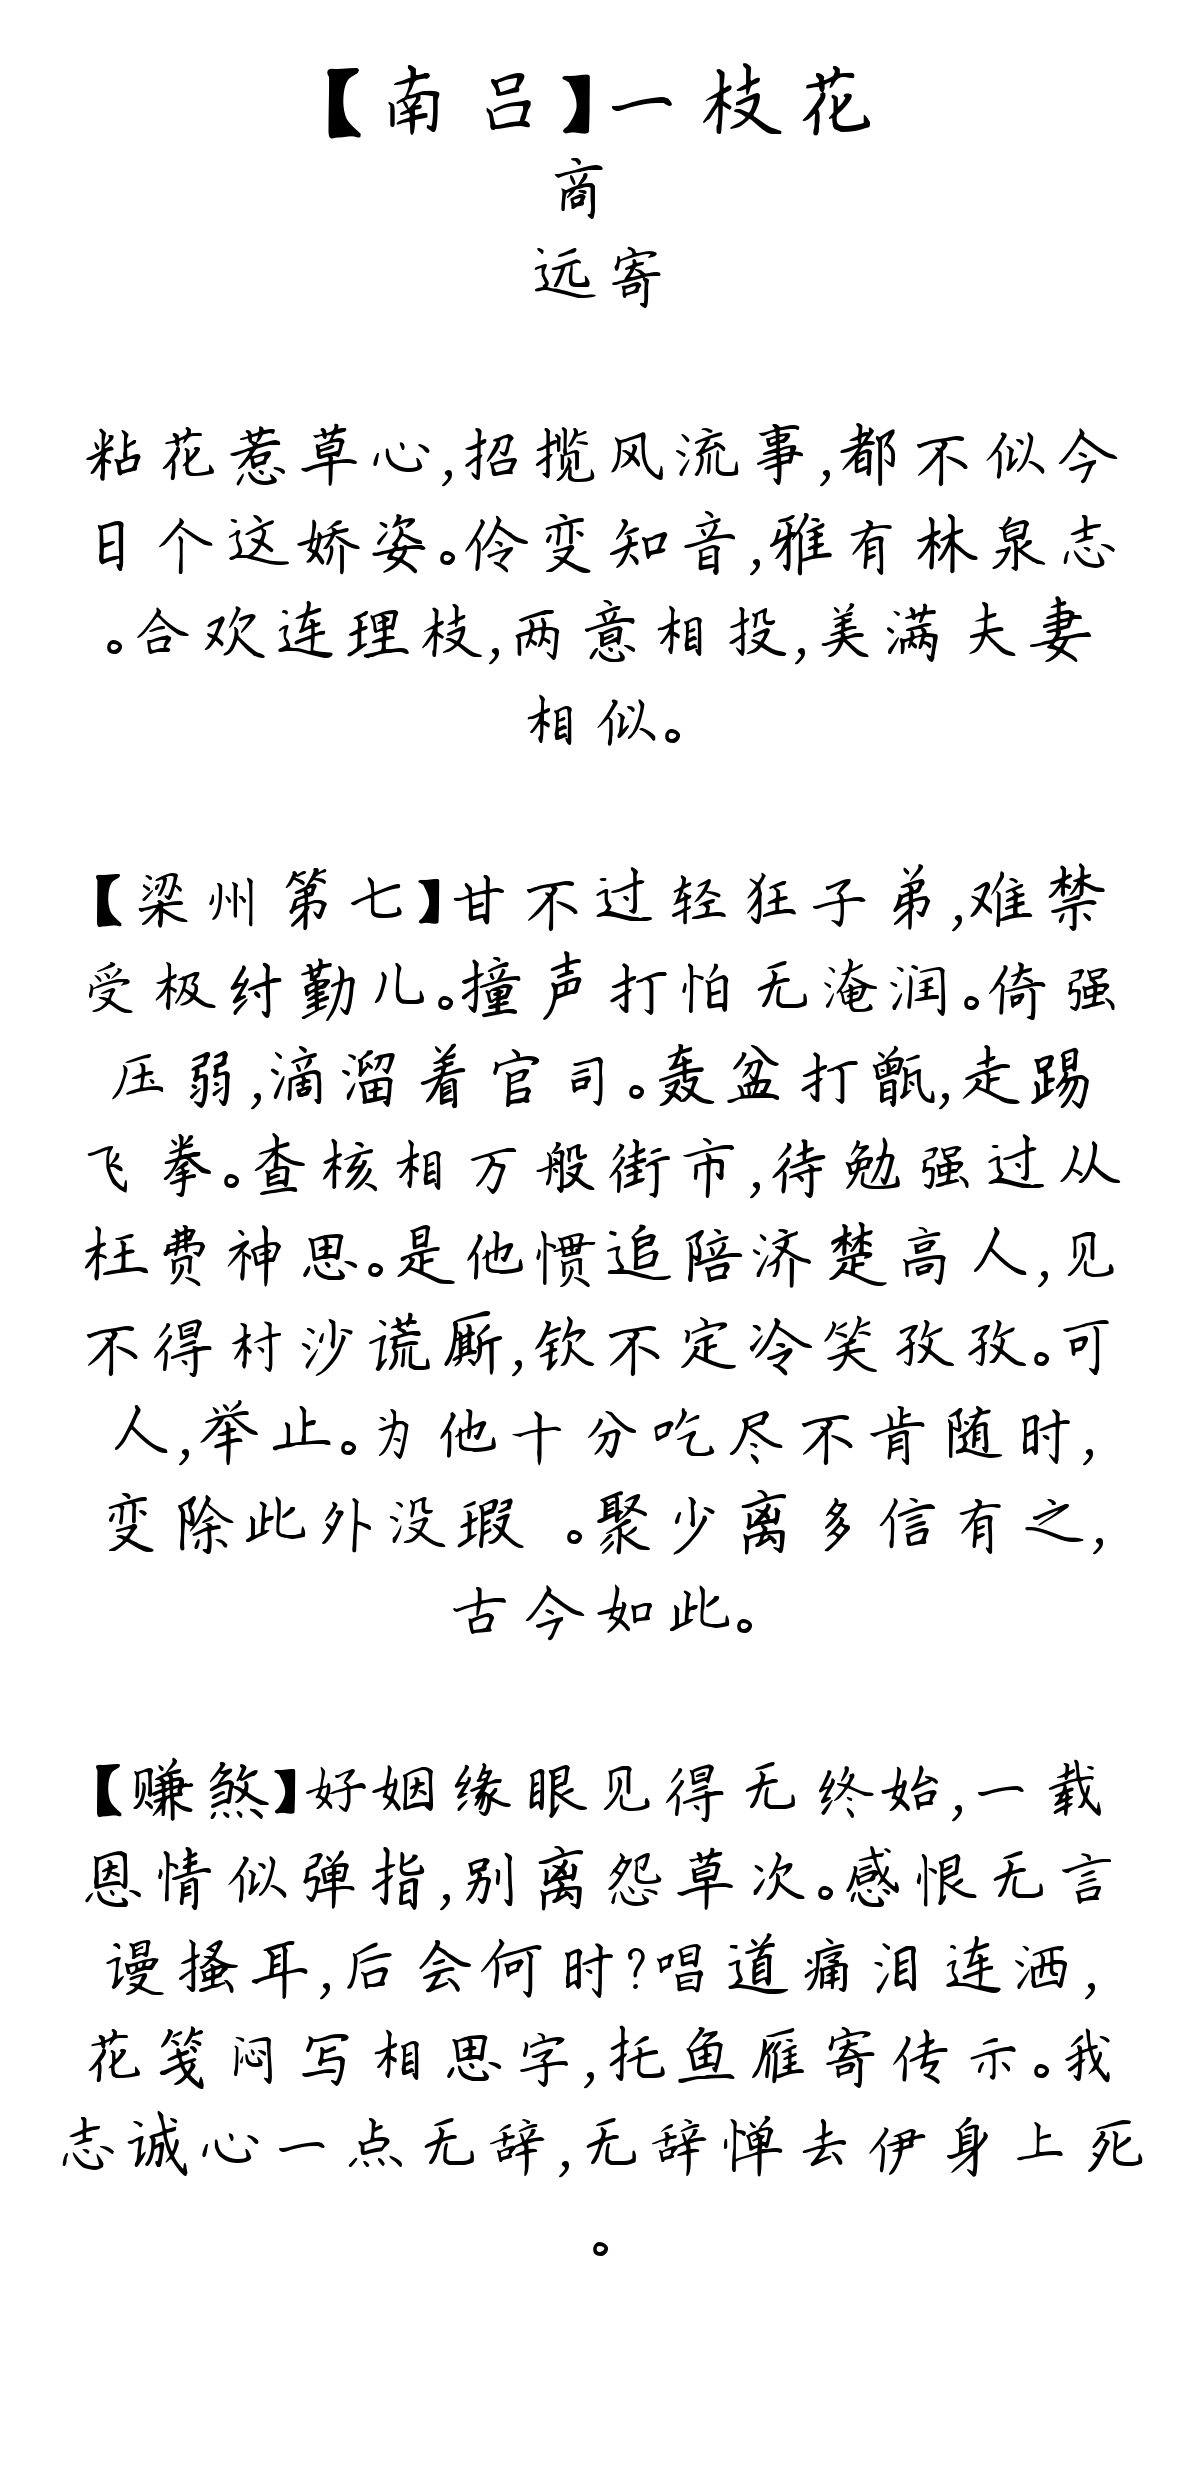 【南吕】一枝花
商
远寄
粘花惹草心,招揽风流事,都不似今
日个这娇姿。伶变知音,雅有林泉志
。合欢连理枝,两意相投,美满夫妻
相似。
【梁州第七】甘不过轻狂子弟,难禁
受极纣勤儿。撞声打怕无淹润。倚强
压弱,滴溜着官司。轰盆打甑,走踢
飞拳。查核相万般街市,待勉强过从
枉费神思。是他惯追陪济楚高人,见
不得村沙谎厮,钦不定冷笑孜孜。可
人,举止。为他十分吃尽不肯随时,
变除此外没瑕 。聚少离多信有之,
古今如此。
【赚煞】好姻缘眼见得无终始,一载
恩情似弹指,别离怨草次。感恨无言
谩搔耳,后会何时?唱道痛泪连洒,
花笺闷写相思字,托鱼雁寄传示。我
志诚心一点无辞,无辞惮去伊身上死
。